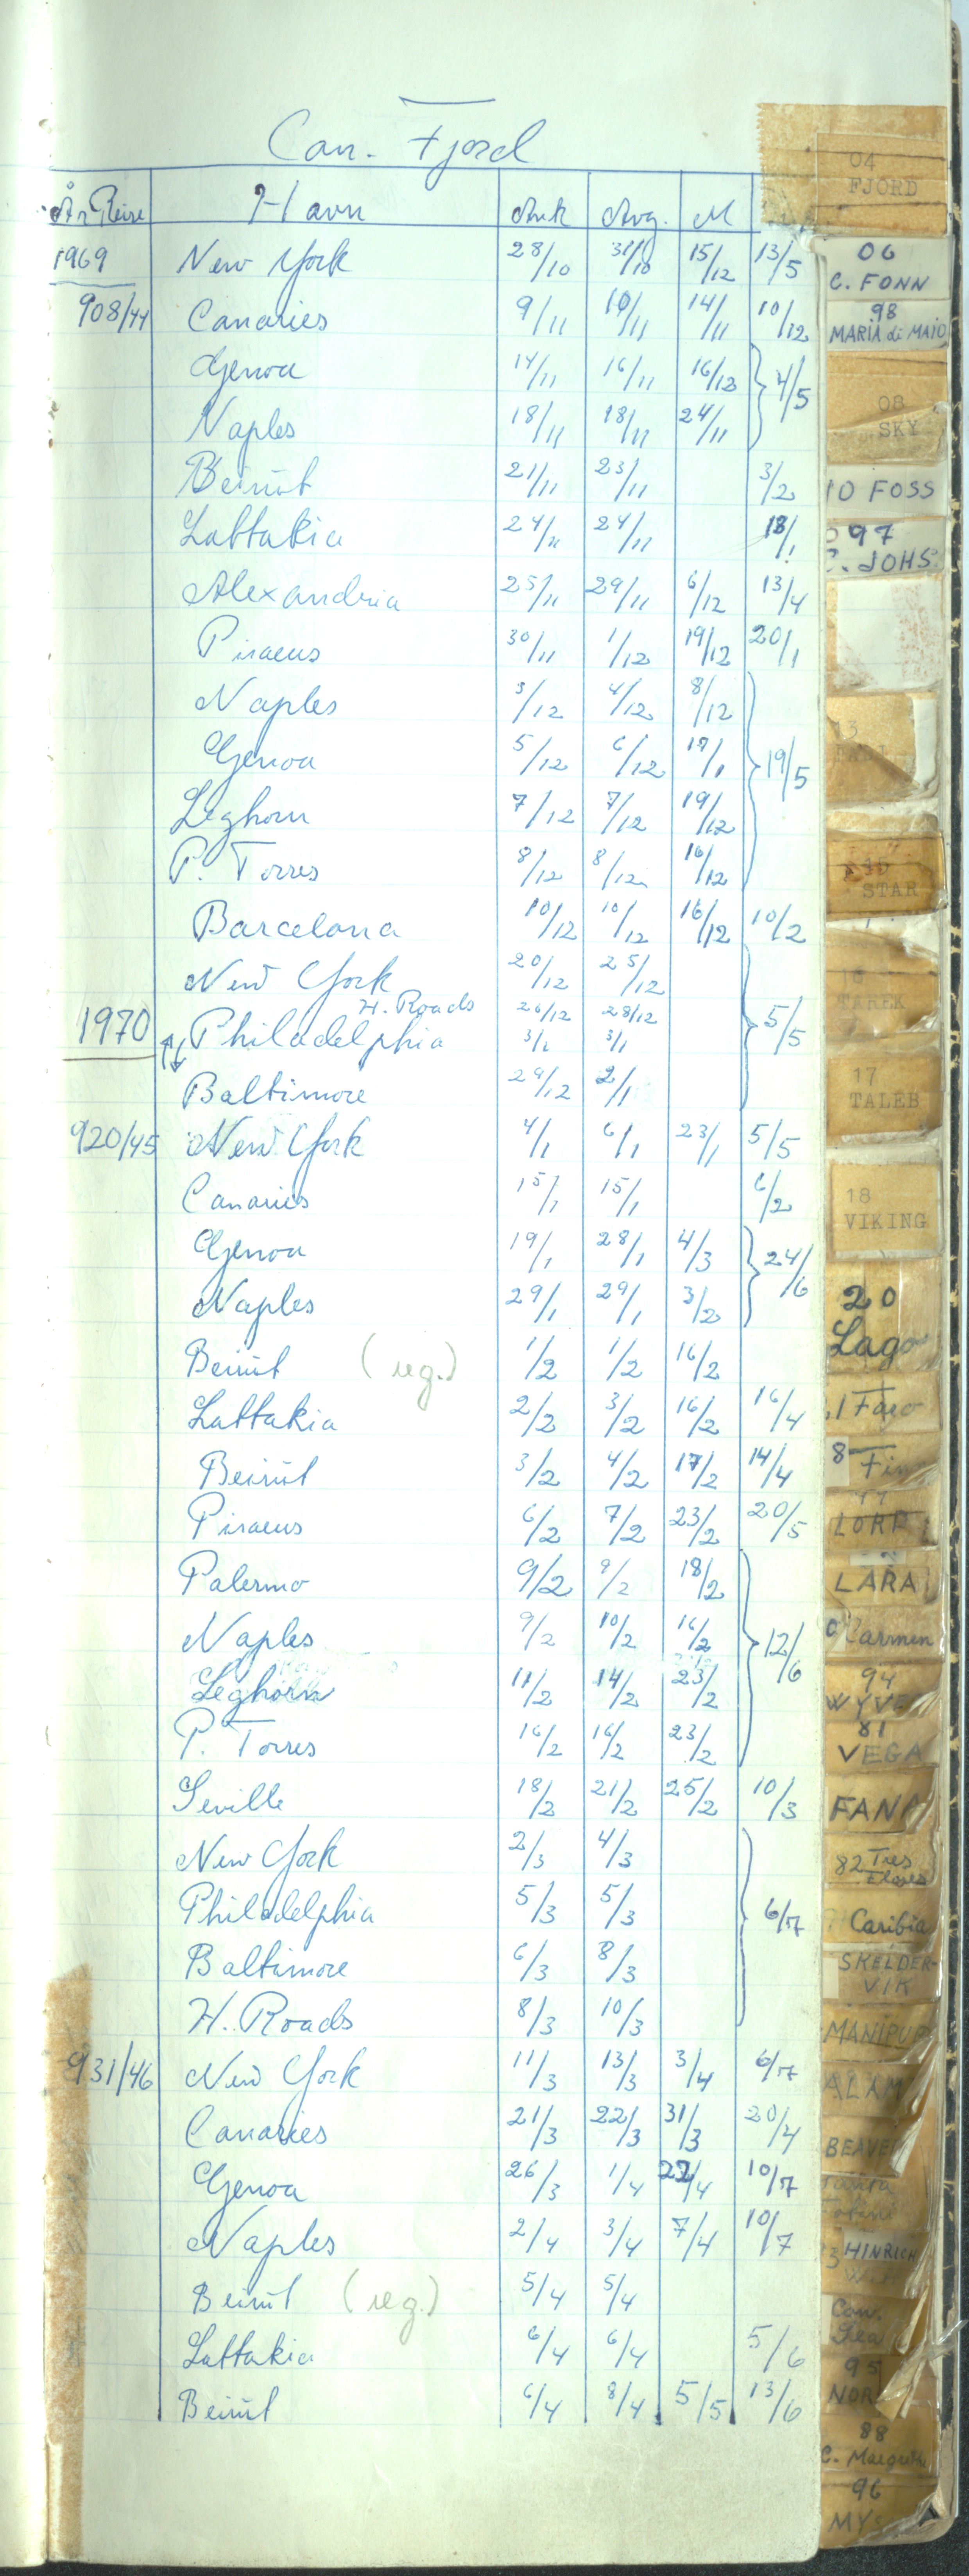 Can. Fjord
År Reise Havn Ank Avg. M
1969 New York 28/10 31/10 15/12 13/5
908/44 Canaries 9/11 10/11 14/11 10/12
Genoa 14/11 16/11 16/12 } 4/5
Naples 18/11 18/11 24/11
Beirut 21/11 23/11 3/2
Lattakia 24/11 24/11 13/1
Alexandria 25/11 29/11 6/12 13/4
Piraeus 30/11 1/12 19/12 20/1
Naples 3/12 4/12 8/12
Genoa 5/12 6/12 17/1 } 19/5
Leghorn 7/12 7/12 19/12
P. Torres 8/12 8/12 16/12
Barcelona 10/12 10/12 16/12 10/2
New York 20/12 25/12
H. Roads 26/12 28/12
1970 Philadelphia 3/1 3/1 } 5/5
Baltimore 29/12 2/1
920/45 New York 4/1 6/1 23/1 5/5
Canaries 15/1 15/1 6/2
Genoa 19/1 28/1 4/3 } 24/6
Naples 29/1 29/1 3/2
Beirut (reg.) 1/2 1/2 16/2
Lattakia 2/2 3/2 16/2 16/4
Beirut 3/2 4/2 17/2 14/4
Piraeus 6/2 7/2 23/2 20/5
Palermo 9/2 9/2 18/2
Naples 9/2 10/2 16/2 } 12/6
Leghorn 11/2 14/2 23/2
P. Torres 16/2 16/2 23/2
Seville 18/2 21/2 25/2 10/3
New York 2/3 4/3
Philadelphia 5/3 5/3 } 6/7
Baltimore 6/3 8/3
H. Roads 8/3 10/3
931/46 New York 11/3 13/3 3/4 6/7
Canaries 21/3 22/3 31/3 20/4
Genoa 26/3 1/4 22/4 10/7
Naples 2/4 3/4 7/4 10/7
Beirut (reg.) 5/4 5/4
Lattakia 6/4 6/4 5/6
Beirut 6/4 8/4 5/5 13/6
04
FJORD
06
C. FONN
98
MARIA di MAIO
08
SKY
10 FOSS
97
C. JOHS.
13
STAR
16
TAREK
17
TALEB
18
VIKING
20
Lago
Faro
8
LORD
LARA
Carmen
94
WYVE
81
VEGA
FANA
82 Tres
Flores
Caribia
SKELDER-
VIK
MANIPUR
ALAM
BEAVE
HINRICH
Con.
95
NOR
88
C. Margrethe
96
MYS